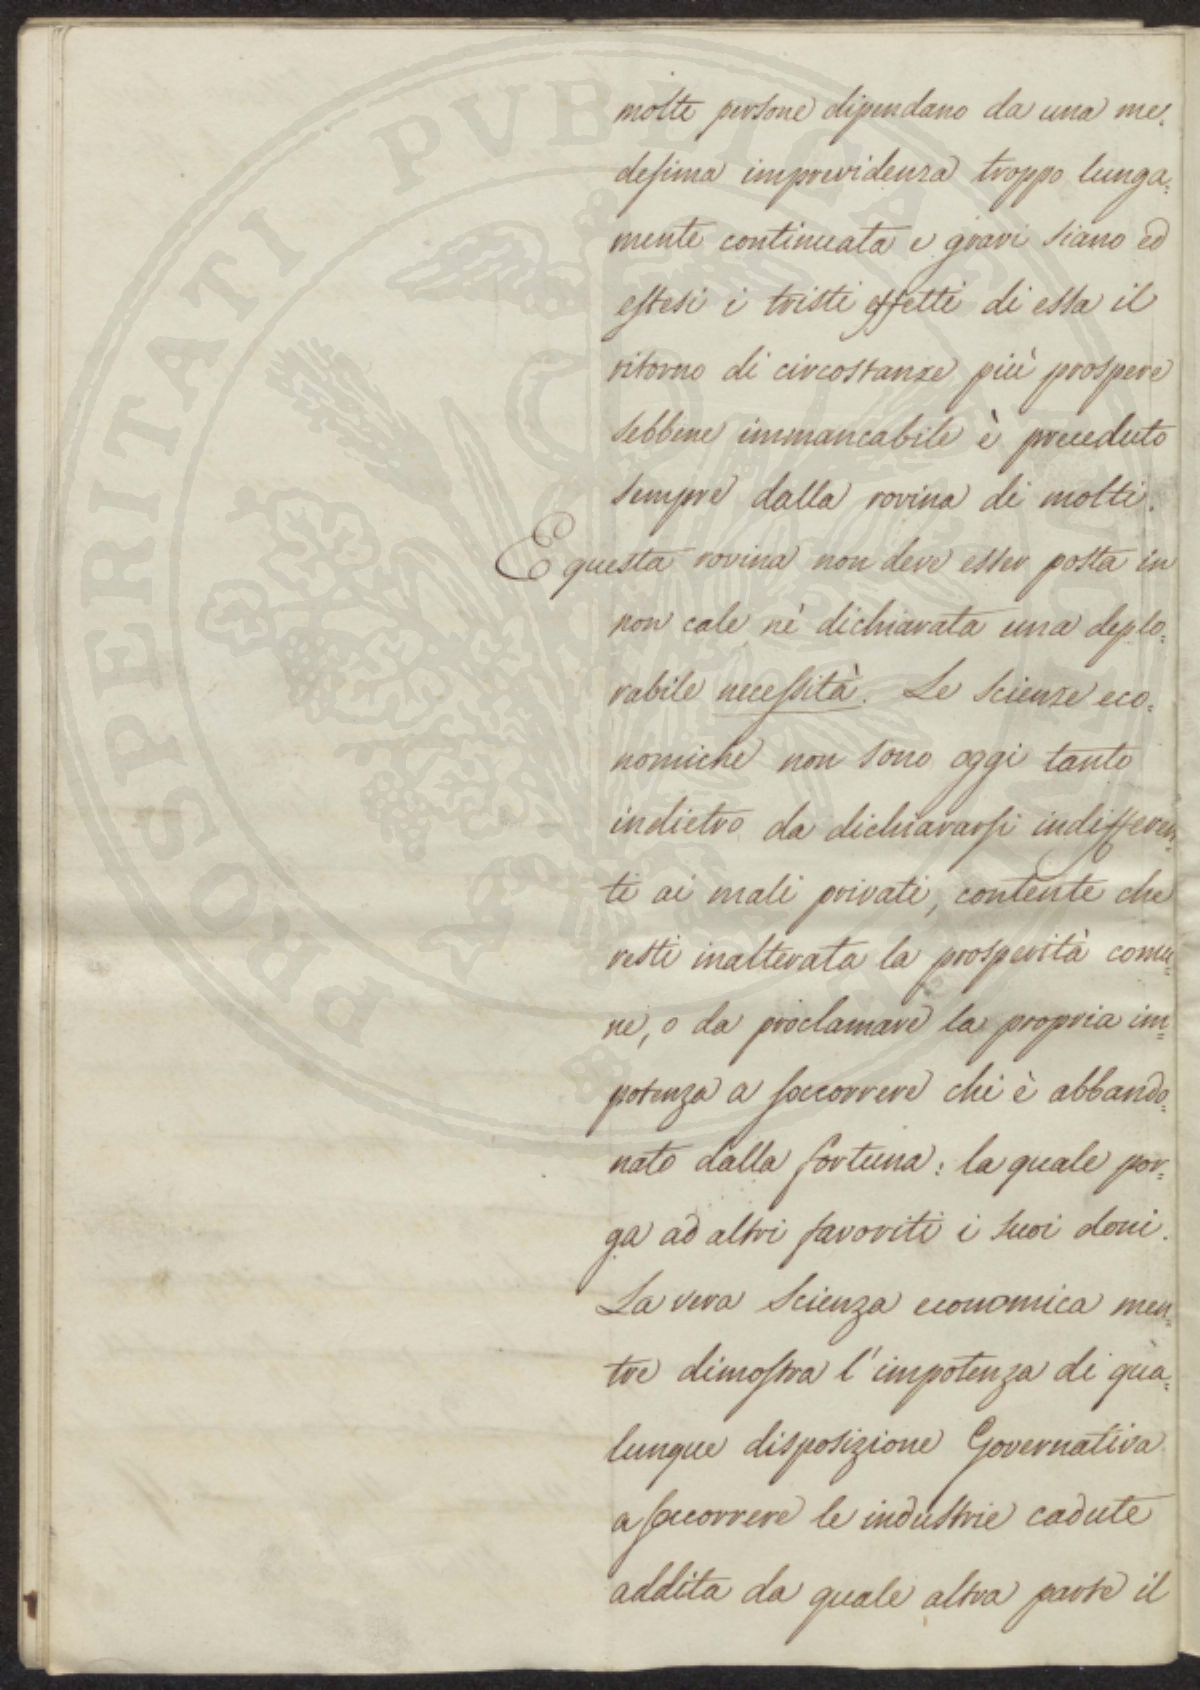 molte persone dipendano da una me=
desima imprevidenza troppo lunga=
mente continuata e gravi siano ed
estesi i tristi effetti di essa il
ritorno di circostanze più prospere
sebbene immancabile è preceduto
sempre dalla rovina di molti.
E questa rovina non deve esser posta in
non cale nè dichiarata una deplo=
rabile necessità. Le scienze eco=
nomiche non sono oggi tanto
indietro da dichiararsi indifferen=
ti ai mali privati, contente che
resti inalterata la prosperità comu=
ne, o da proclamare la propria im=
potenza a soccorrere chi è abbando=
nato dalla fortuna: la quale por=
ga ad altri favoriti i suoi doni.
La vera Scienza economica men=
tre dimostra l'impotenza di qua=
lunque disposizione Governativa
a soccorrere le industrie cadute
addita da quale altra parte il
PROSPERITATI PVBLICAE